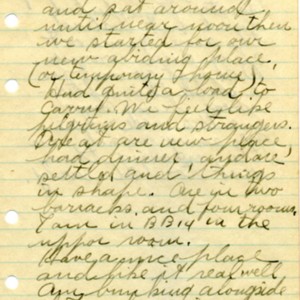 and sat around
until near noon then
we started for our
new abiding place,
(or temporary home),
Had quite a load to
carry. We feel like
pilgrims and strangers.
We at are new place,
had dinner, and are
settled and things
in shape. Are in two
barracks, and four rooms,
I am in BB14 in the
upper room.
Have a nice place
and like it real well
Am bunking alongside